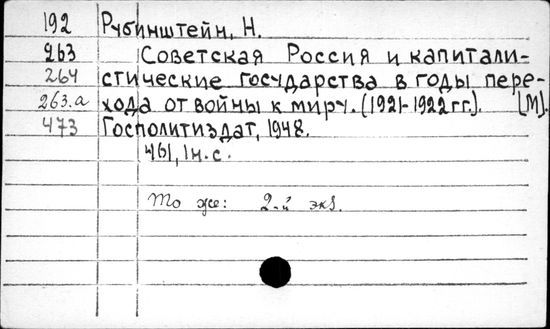 192 Рубинштейн, Н.
263 Советская Россия и капитали-
264 стические государства в годы пере-
263.а хода от войны к миру. (1921-1922 гг.). [М].
473 Госполитиздат, 1948.
461, 1н. с.
То же: 2-й экз.